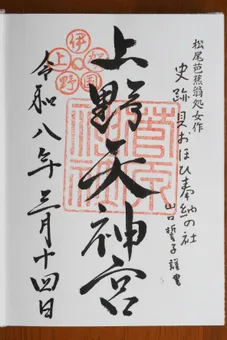 松尾芭蕉翁処女作
史跡貝おほひ奉納の社
山口誓子
上野天神宮
菅原
神社
伊賀国
上野
令和八年三月十四日